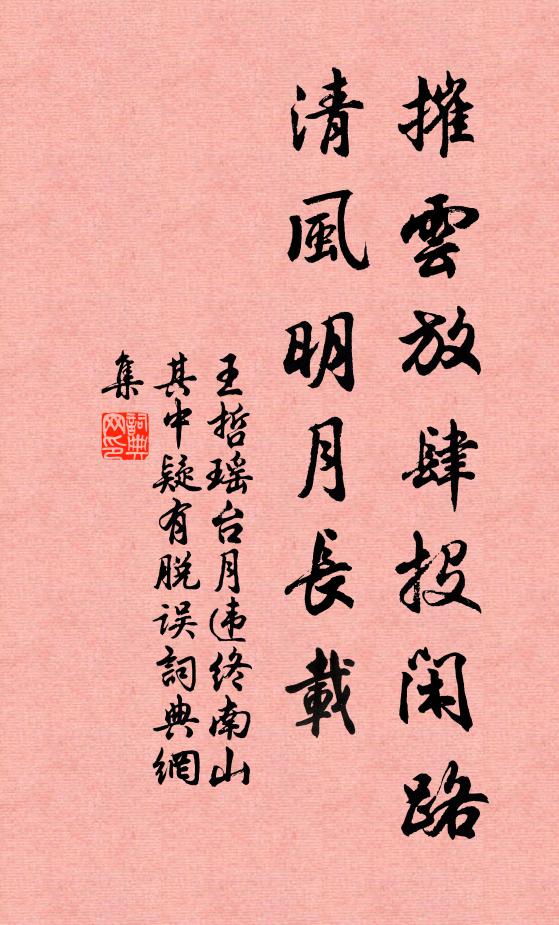 摧雲放肆投閑路
清風明月長載
王哲瑶台月违终南山
其中疑有脱误詞典網
集
詞典
网印